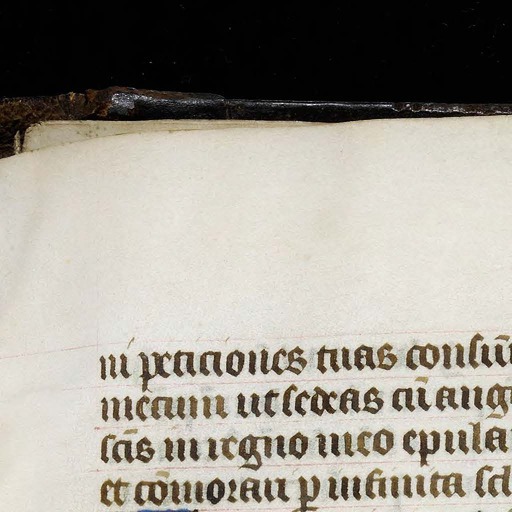 ni peticiones tuas consūm
mecum ut sedeas cū ang
scīs in regno meo epula
et cōmorari p infinita scl